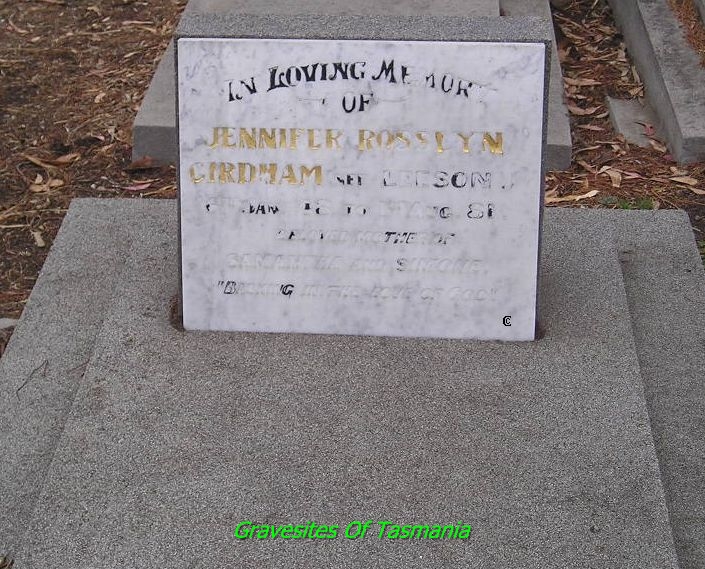 IN LOVING MEMORY
OF
JENNIFER ROSSLYN
GIRDHAM NEE LEESON
JAN 48 TO AUG 81
BELOVED MOTHER OF
SAMANTHA AND SIMONE
"BASKING IN THE LOVE OF GOD"
Gravesites Of Tasmania